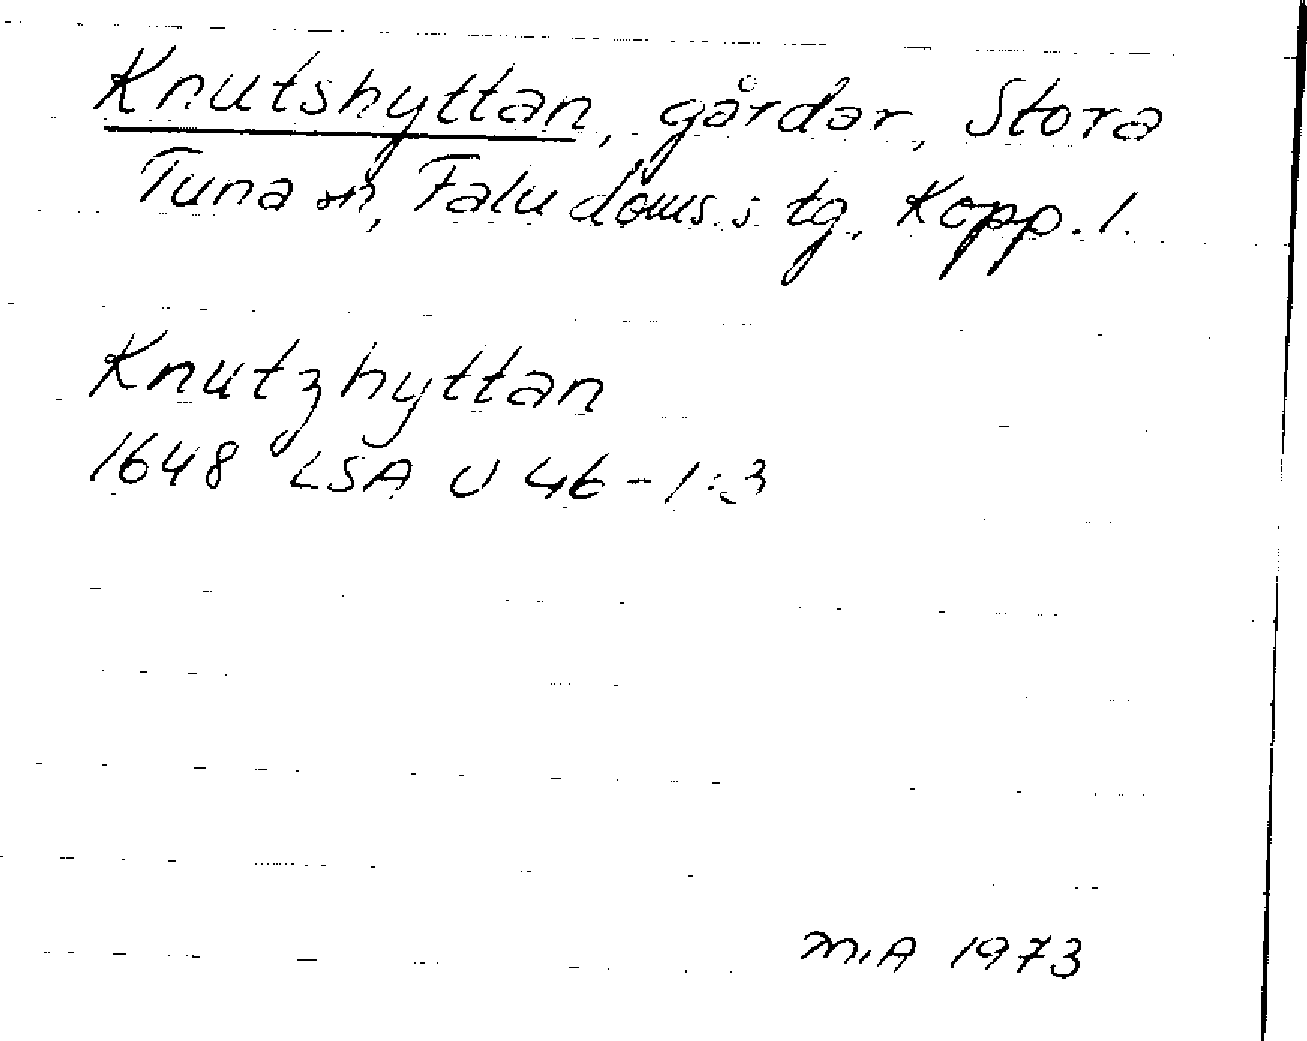 Knutshyttan, gårdar, Stora
Tuna sn, Falu doms. s tg, Kopp. l.
Knutzhyttan
1648 LSA U 46-1:3
M.A 1973